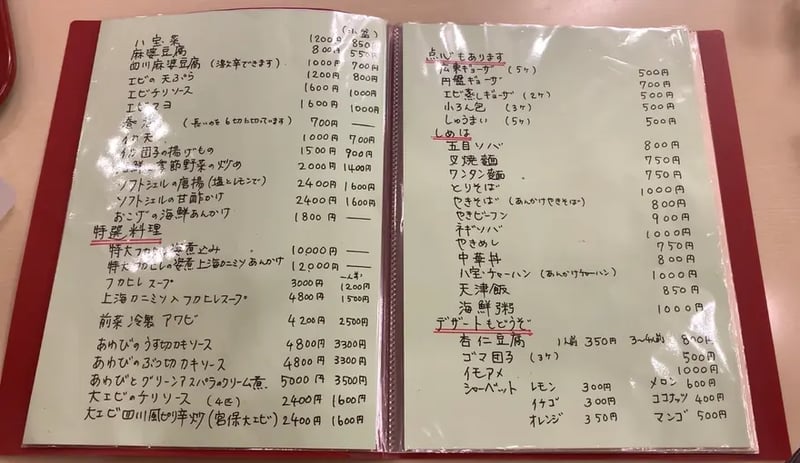 (小盆)
八宝菜 1200円 850
麻婆豆腐 800円 550
四川麻婆豆腐 (激辛できます) 1000円 700円
エビの天ぷら 1200円 800円
エビチリソース 1600円 1000円
エビマヨ 1600円 1000円
春巻 (長いかを6切に切っています) 700円 ―
イカ天 1000円 700円
イカ団子の揚げもの 1500円 900円
海鮮と季節野菜の炒め 2000円 1400円
ソフトシェルの唐揚(塩とレモンで) 2400円 1600円
ソフトシェルの甘酢かけ 2400円 1600円
おこげの海鮮あんかけ 1800円 ―
特選料理
特大フカヒレの姿煮込み 10,000円 ―
特大フカヒレの姿煮上海カニミソあんかけ 12,000円 ―
フカヒレスープ 3000円 一人前 1200円
上海カニミソ入フカヒレスープ 4800円 1500円
前菜 冷製 アワビ 4200円 2500円
あわびのうす切カキソース 4800円 3300円
あわびのぶつ切カキソース 4800円 3300円
あわびとグリーンアスパラのクリーム煮 5000円 3500円
大エビのチリソース (4匹) 2400円 1600円
大エビ四川風ピリ辛炒(宮保大エビ) 2400円 1600円
点心もあります
広東ギョーザ (5ヶ) 500円
円盤ギョーザ 700円
エビ蒸しギョーザ (2ヶ) 500円
小ろん包 (3ヶ) 500円
しゅうまい (5ヶ) 500円
しめは
五目ソバ 800円
叉焼麺 750円
ワンタン麺 750円
とりそば 1000円
やきそば (あんかけやきそば) 800円
やきビーフン 900円
ネギソバ 1000円
やきめし 750円
中華丼 800円
八宝チャーハン (あんかけチャーハン) 1000円
天津飯 850円
海鮮粥 1000円
デザートもどうぞ
杏仁豆腐 1人前 350円 3〜4人前 800円
ゴマ団子 (3ヶ) 500円
イモアメ 1000円
シャーベット レモン 300円 メロン 600円
イチゴ 300円 ココナッツ 400円
オレンジ 350円 マンゴ 500円